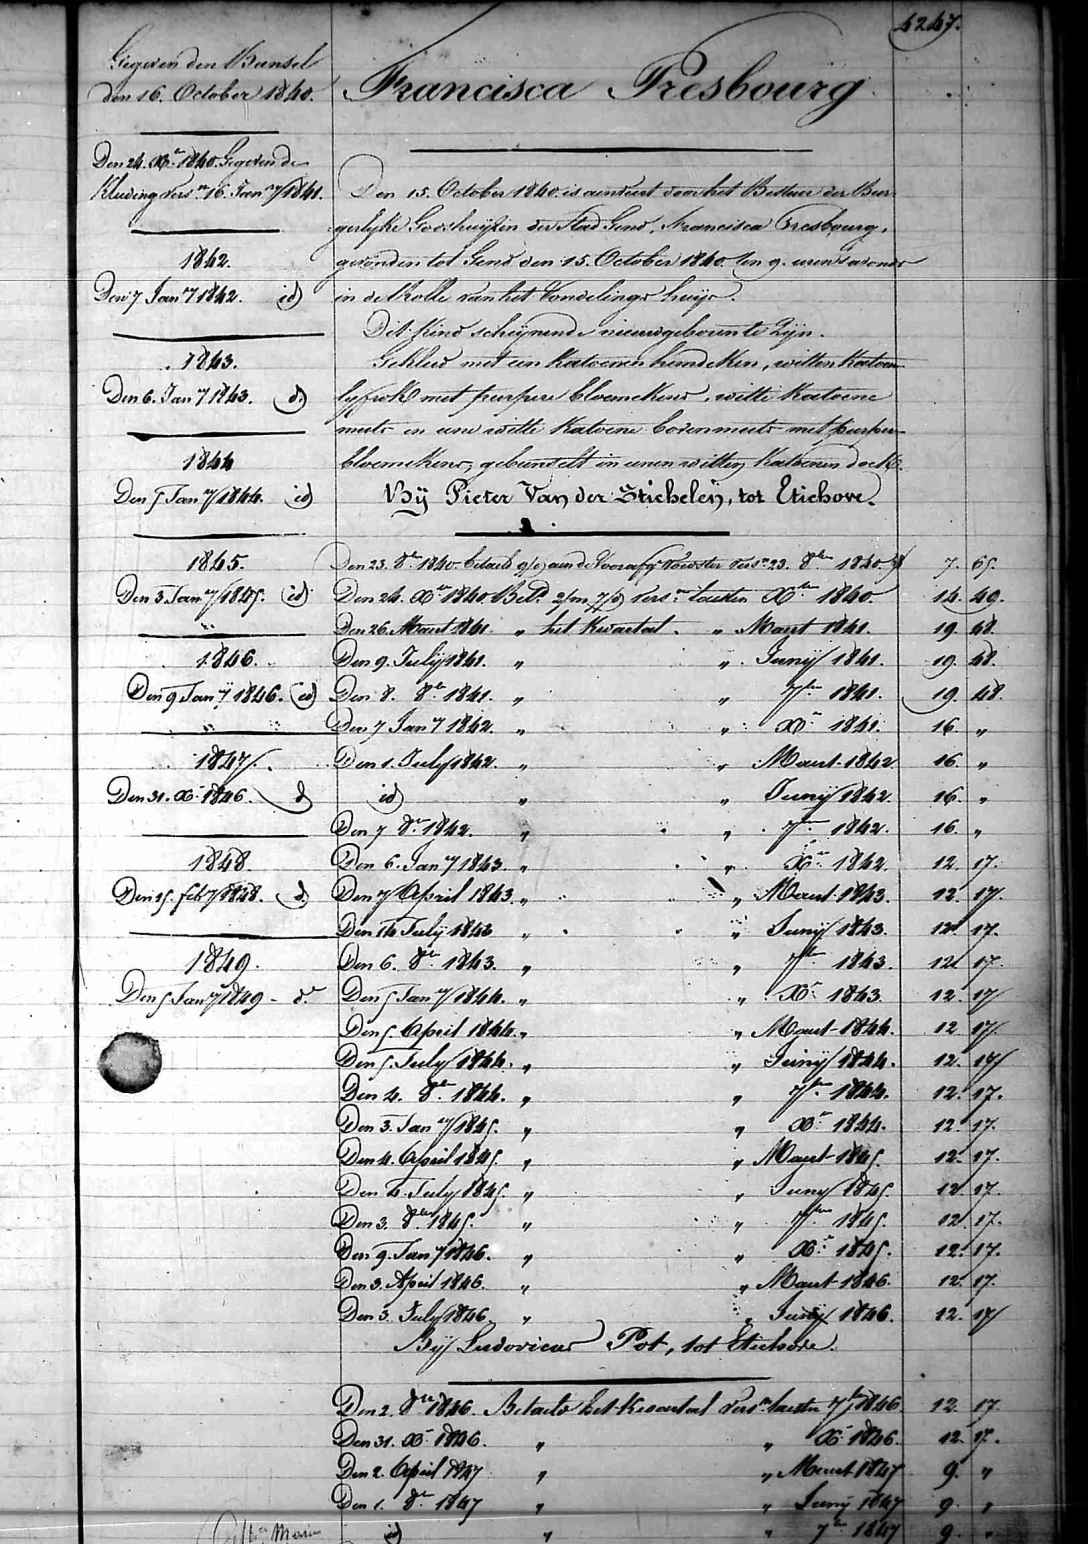 4247.
Gegeven den Bunsel
den 16. October 1840.
Den 24. Xb.r 1840. Gegeven de
Kleeding vers.n 16. Jan.ry 1841.
1842.
Den 7 Jan.y 1842. id
1843.
Den 6. Jan.y 1843. d.
1844
Den 5 Jan.y 1844. id
1845.
Den 3. Jan.y 1845. id.
1846.
Den 9 Jan.y 1846. id
1847.
Den 31. Xb.r 1846. d
1848.
Den 15. feb.y 1848. d.
1849.
Den 5 Jan.y 1849 - d.e
Francisca Presbourg
Den 15. October 1840. is aenveert door het Bestuer der Bur-
gerlyke Godshuyzen der Stad Gend, Francisca Presbourg,
gevonden tot Gend den 15. October 1840. ten 9. uren 's avonds
in de Rolle van het Vondelings huys.
Dit Kind schynende nieuwgeboren te zyn.
Gekleed met een Katoenen hemdeken, witten Katoen
lyfrok met purpere bloemekens, witte Katoene
muts en eene witte Katoene bovenmuts met purper
bloemekens, gebunselt in eenen witten Katoenen doek.
Bÿ Pieter Van der Stichelen, tot Etichove.
Den 23. 8.br 1840. betaelt aen de Voorafg. Voedster vers.n 23. 8.ber 1840 7. 65.
Den 24. Xb.er 1840. Bet.d 2/m 7/d vers.n laesten Xb.er 1840. 14. 49.
Den 26. Maert 1841. „ het Kwartael. „ Maert 1841. 19. 48.
Den 9. July 1841. „ „ Junÿ 1841. 19. 48.
Den 8. 8.br 1841. „ „ 7.ber 1841. 19. 48.
Den 7 Jan.y 1842. „ „ Xb.r 1841. 16. „
Den 1. July 1842. „ „ Maert 1842 16. „
id „ „ Junÿ 1842. 16. „
Den 7 8.br 1842. „ „ 7.br 1842. 16. „
Den 6. Jan.y 1843. „ „ Xb.r 1842. 12. 17.
Den 7 April 1843. „ „ Maert 1843. 12. 17.
Den 14 July 1843 „ „ Junÿ 1843. 12. 17.
Den 6. 8.br 1843. „ „ 7.ber 1843. 12. 17.
Den 5 Jan.y 1844. „ „ Xb.r 1843. 12. 17
Den 5. April 1844. „ „ Maert 1844. 12. 17.
Den 5. July 1844. „ „ Junÿ 1844. 12. 17
Den 4. 8.br 1844. „ „ 7.ber 1844. 12. 17.
Den 3. Jan.ry 1845. „ „ Xb.r 1844. 12. 17.
Den 4. April 1845. „ „ Maert 1845. 12. 17.
Den 4. July 1845. „ „ Juny 1845. 12. 17.
Den 3. 8.ber 1845. „ „ 7.ber 1845. 12. 17.
Den 9. Jan.y 1846. „ „ Xb.r 1845. 12. 17.
Den 3. April 1846. „ „ Maert 1846. 12. 17.
Den 3. July 1846. „ „ Junÿ 1846. 12. 17
Bÿ Ludovicus Pot, tot Etichove.
Den 2. 8.bre 1846. Betaelt het Kwartael vers.n laesten 7.br 1846. 12. 17.
Den 31. Xb.r 1846. „ „ Xb.r 1846. 12. 17.
Den 2. April 1847 „ „ Maert 1847 9. „
Den 1. 8.br 1847 „ „ Junÿ 1847 9. „
id „ „ 7.br 1847 9. „